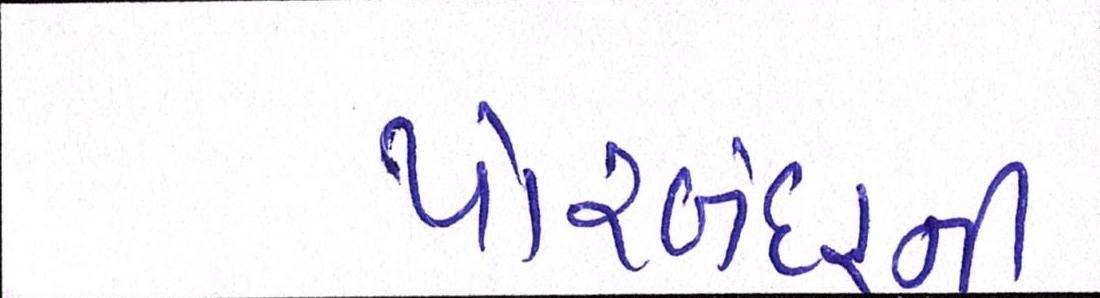 પોરબંદરની